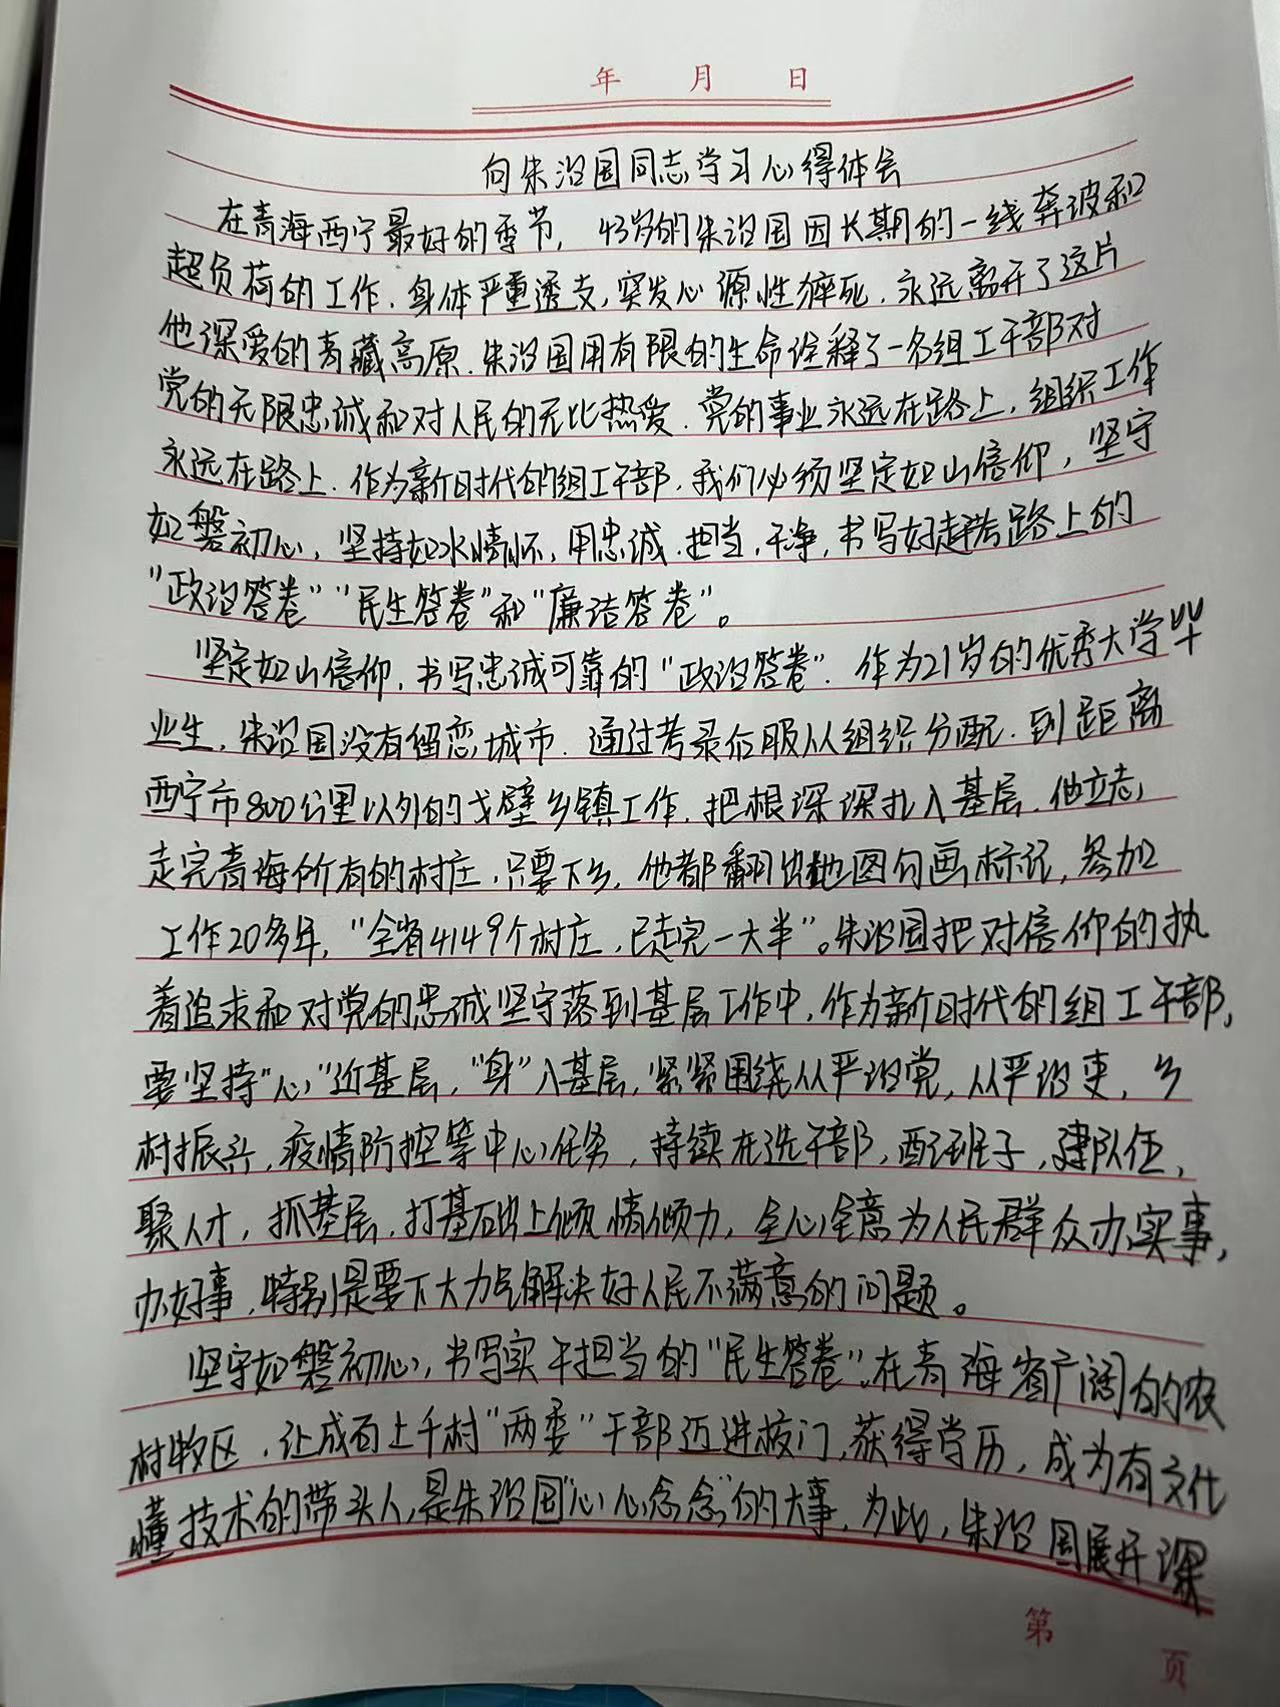 年 月 日
向朱治国同志学习心得体会
在青海西宁最好的季节，43岁的朱治国因长期的一线奔波和
超负荷的工作，身体严重透支，突发心源性猝死，永远离开了这片
他深爱的青藏高原。朱治国用有限的生命诠释了一名组工干部对
党的无限忠诚和对人民的无比热爱。党的事业永远在路上，组织工作
永远在路上。作为新时代的组工干部，我们必须坚定如山信仰，坚守
如磐初心，坚持如水情怀，用忠诚、担当、干净，书写好赶考路上的
“政治答卷”“民生答卷”和“廉洁答卷”。
坚定如山信仰，书写忠诚可靠的“政治答卷”。作为21岁的优秀大学毕
业生，朱治国没有留恋城市，通过考录后服从组织分配，到距离
西宁市800公里以外的戈壁乡镇工作，把根深深扎入基层。他立志
走完青海所有的村庄，只要下乡，他都翻出地图勾画标记，参加
工作20多年，“全省4149个村庄，已走完一大半”。朱治国把对信仰的执
着追求和对党的忠诚坚守落到基层工作中，作为新时代的组工干部，
要坚持“心”近基层，“身”入基层，紧紧围绕从严治党，从严治吏，乡
村振兴，疫情防控等中心任务，持续在选干部，配班子，建队伍，
聚人才，抓基层，打基础上倾情倾力，全心全意为人民群众办实事，
办好事，特别是要下大力气解决好人民不满意的问题。
坚守如磐初心，书写实干担当的“民生答卷”。在青海省广阔的农
村牧区，让成百上千村“两委”干部迈进校门，获得学历，成为有文化
懂技术的带头人，是朱治国“心心念念”的大事，为此，朱治国展开深
第 页